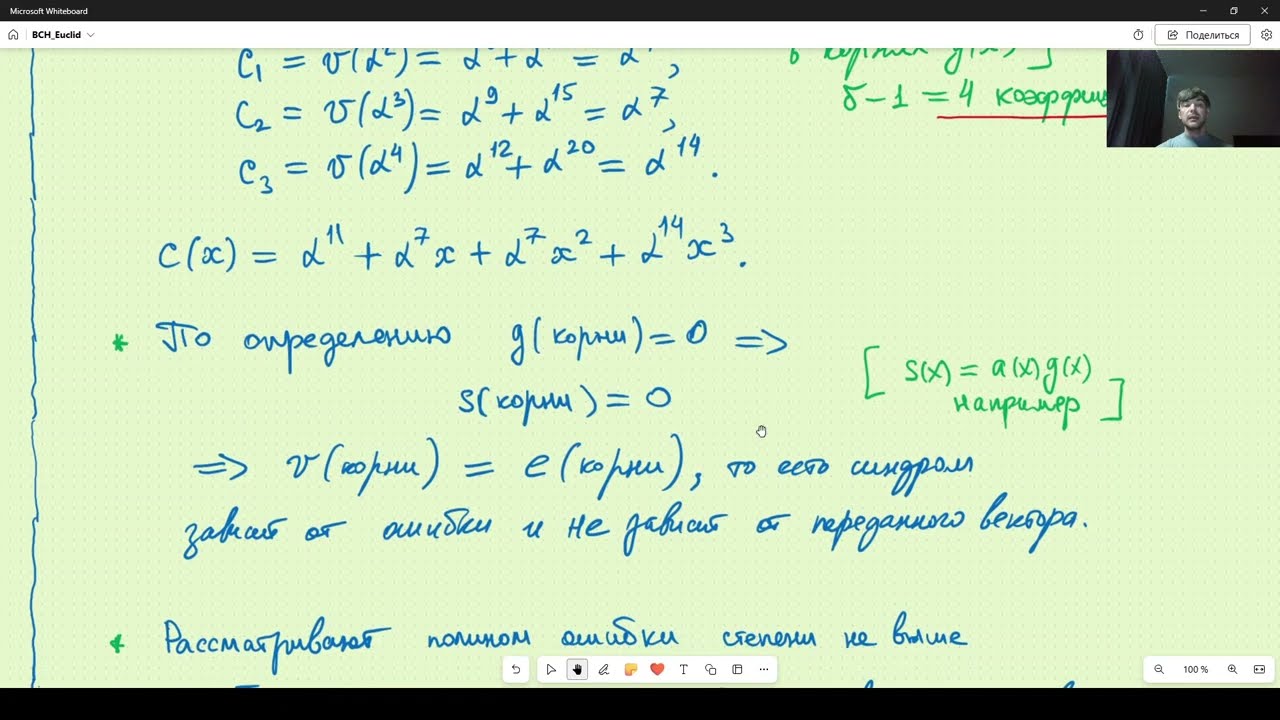 Microsoft Whiteboard
BCH_Euclid
Поделиться
C₁ = v(α²) = α + α = α ,
в корнях g(x) ]
δ-1 = 4 коэффици
C₂ = v(α³) = α⁹ + α¹⁵ = α⁷,
C₃ = v(α⁴) = α¹² + α²⁰ = α¹⁴.
C(x) = α¹¹ + α⁷x + α⁷x² + α¹⁴x³.
* По определению g(корни) = 0 =>
s(корни) = 0
[ S(x) = a(x)g(x)
например ]
=> v(корни) = e(корни), то есть синдром
зависит от ошибки и не зависит от переданного вектора.
* Рассматривают полином ошибки степени не выше
100 %